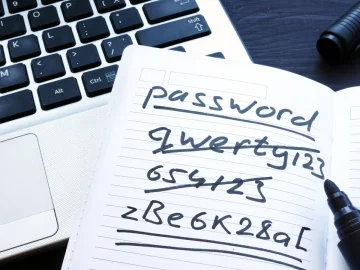 password
qwerty123
654123
zBe6K28a[
Alt
Ctrl
Shift